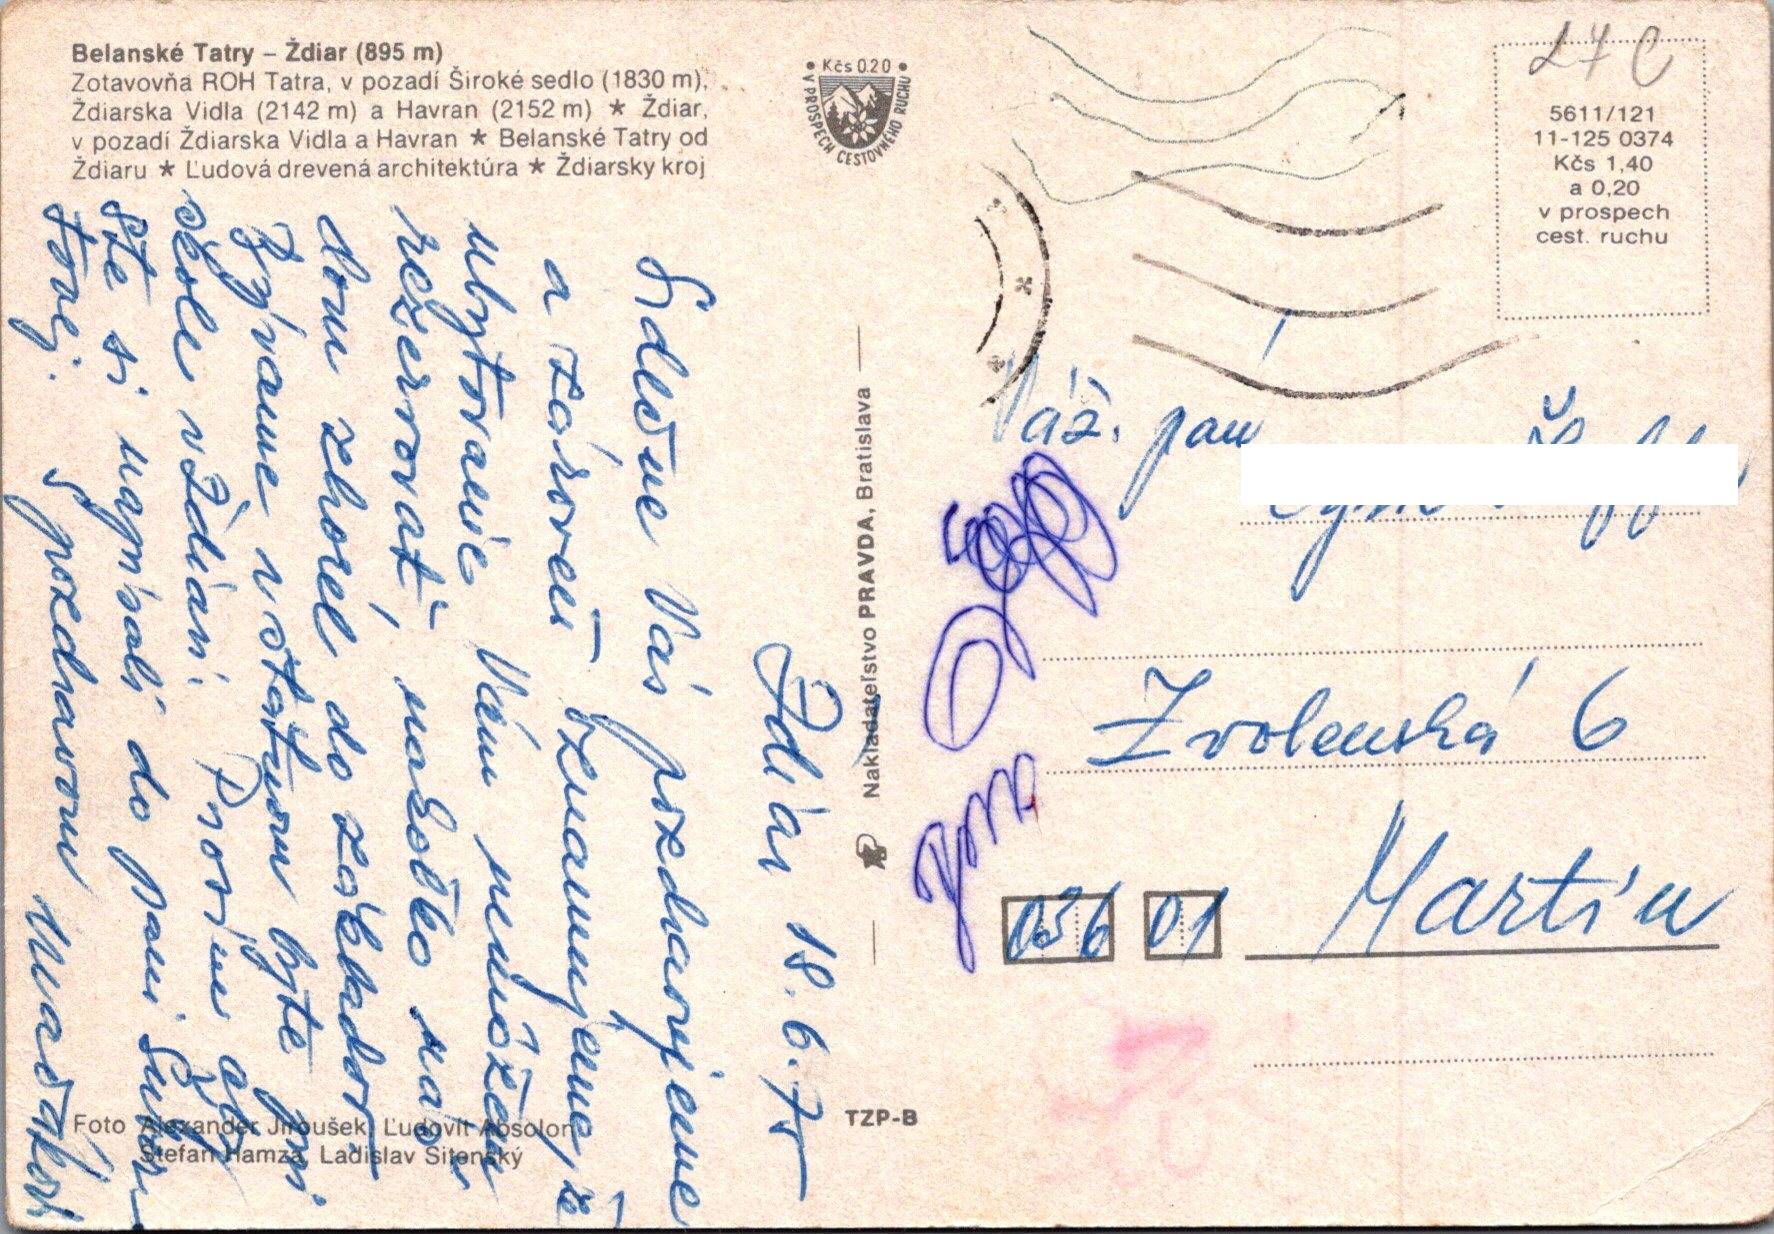 Belanské Tatry – Ždiar (895 m)
Zotavovňa ROH Tatra, v pozadí Široké sedlo (1830 m),
Ždiarska Vidla (2142 m) a Havran (2152 m) ★ Ždiar,
v pozadí Ždiarska Vidla a Havran ★ Belanské Tatry od
Ždiaru ★ Ľudová drevená architektúra ★ Ždiarsky kroj
• Kčs 0.20 •
V PROSPECH CESTOVNÉHO RUCHU
5611/121
11-125 0374
Kčs 1,40
a 0,20
v prospech
cest. ruchu
Ždiar 18.6.75
Srdečne Vás pozdravujeme
a zároveň oznamujeme, že
ubytovanie Vám nemôžem
rezervovať, nakoľko náš
dom zhorel do základov
Bývame v statnom byte pri
škole v Ždiari. Prosím aby
ste si napísali do pani
tovej. S pozdravom
Váž. pán
Zvolenská 6
036 01 Martin
Nakladateľstvo PRAVDA, Bratislava
TZP-B
Foto Alexander Jiroušek, Ľudovít Absolon,
Štefan Hamza, Ladislav Sitenský